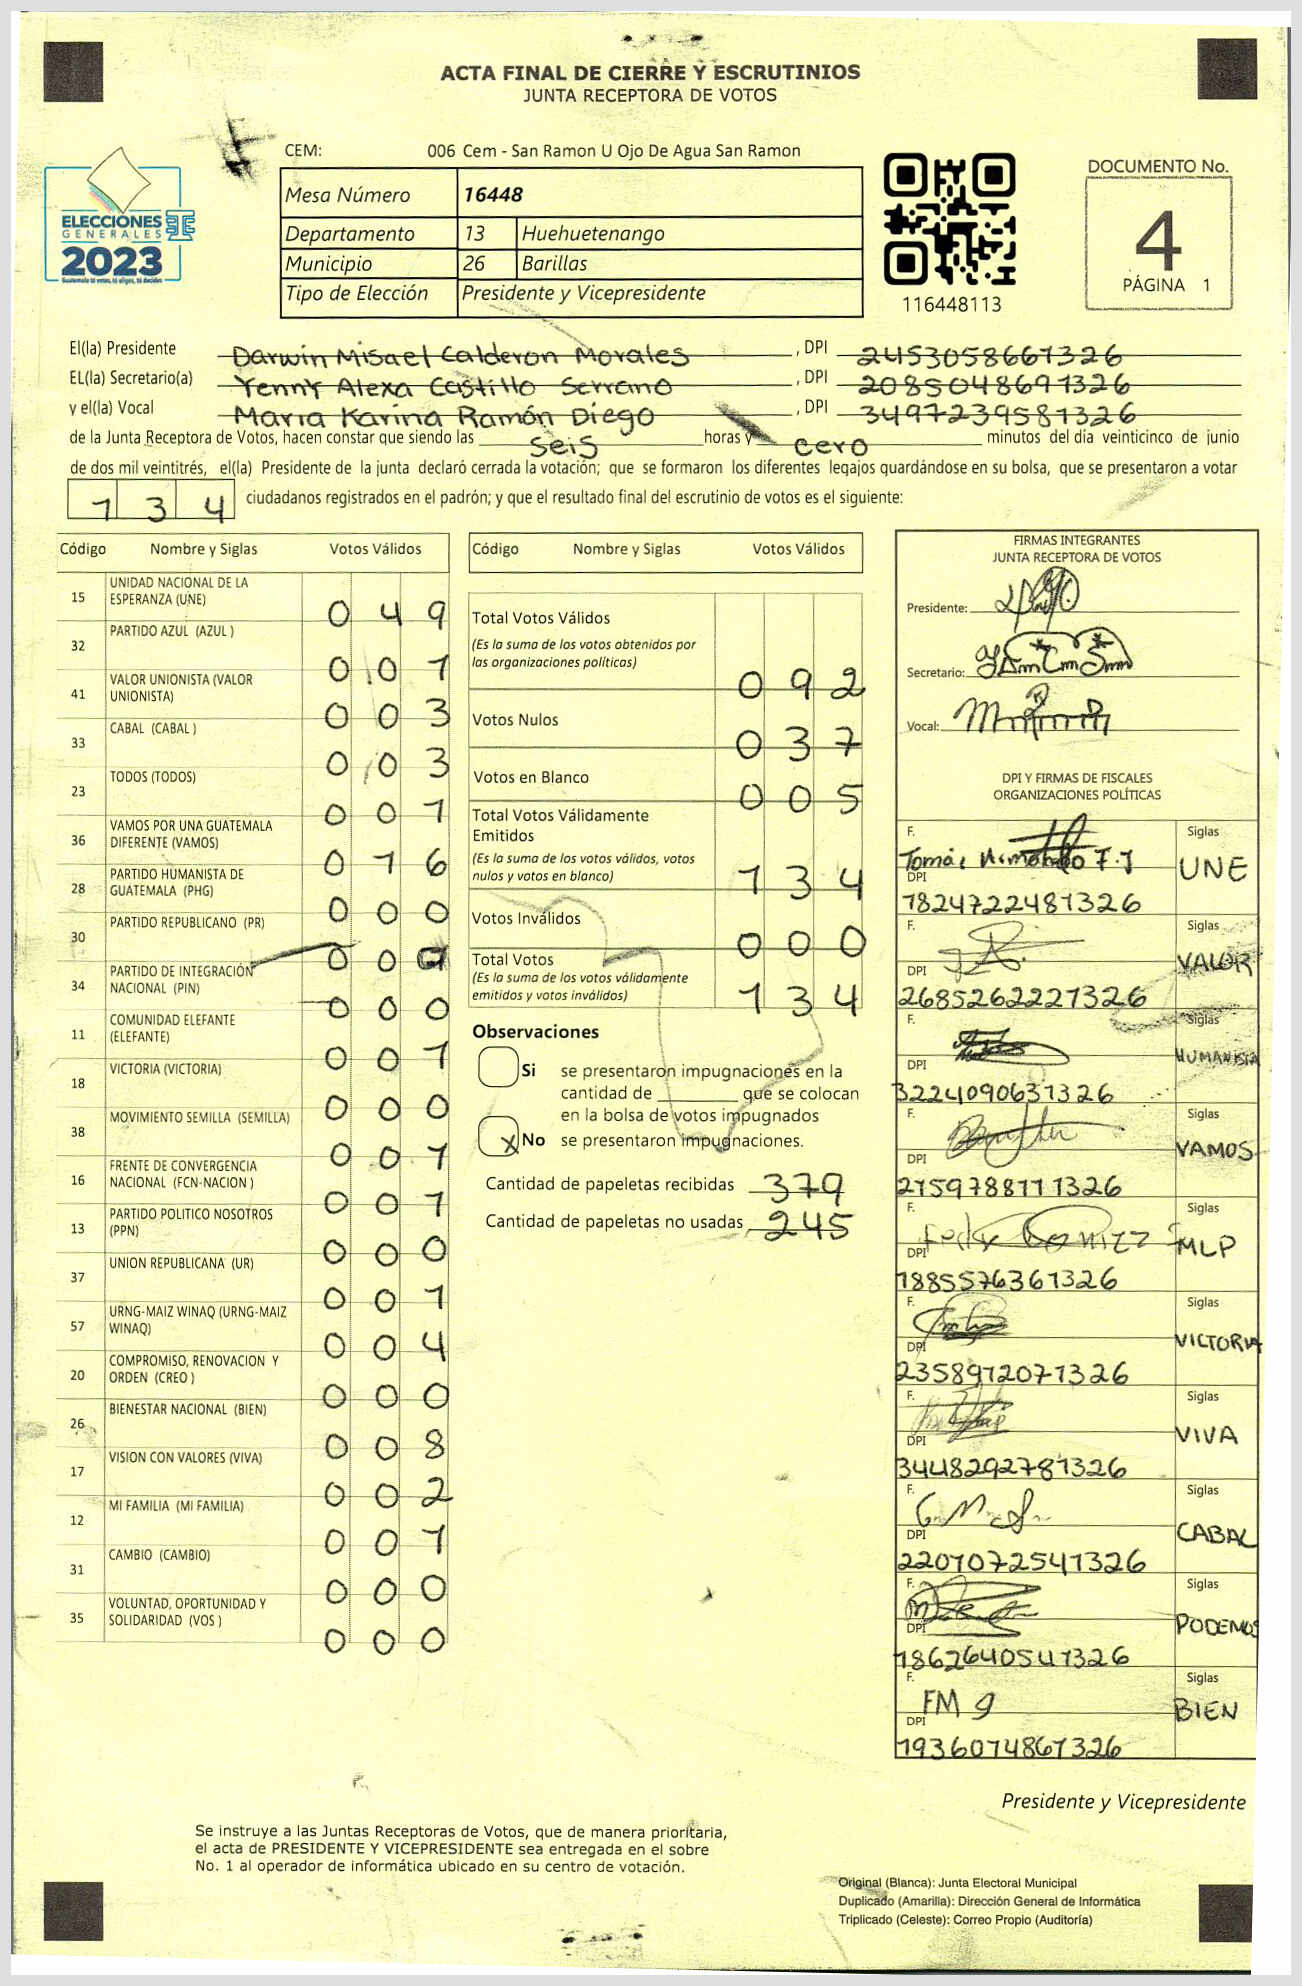 ACTA FINAL DE CIERRE Y ESCRUTINIOS
JUNTA RECEPTORA DE VOTOS
CEM: 006 Cem - San Ramon U Ojo De Agua San Ramon
Mesa Número 16448
Departamento 13 Huehuetenango
Municipio 26 Barillas
Tipo de Elección Presidente y Vicepresidente
ELECCIONES
GENERALES
2023
116448113
DOCUMENTO No.
4
PÁGINA 1
El(la) Presidente Darwin Misael Calderon Morales , DPI 2453058661326
EL(la) Secretario(a) Yenny Alexa Castillo Serrano , DPI 2085048691326
y el(la) Vocal Maria Karina Ramón Diego , DPI 3497239581326
de la Junta Receptora de Votos, hacen constar que siendo las seis horas y cero minutos del día veinticinco de junio
de dos mil veintitrés, el(la) Presidente de la junta declaró cerrada la votación; que se formaron los diferentes legajos guardándose en su bolsa, que se presentaron a votar
134 ciudadanos registrados en el padrón; y que el resultado final del escrutinio de votos es el siguiente:
Código Nombre y Siglas Votos Válidos
15 UNIDAD NACIONAL DE LA
ESPERANZA (UNE) 049
32 PARTIDO AZUL (AZUL ) 001
41 VALOR UNIONISTA (VALOR
UNIONISTA) 003
33 CABAL (CABAL ) 003
23 TODOS (TODOS) 001
36 VAMOS POR UNA GUATEMALA
DIFERENTE (VAMOS) 016
28 PARTIDO HUMANISTA DE
GUATEMALA (PHG) 000
30 PARTIDO REPUBLICANO (PR) 00
34 PARTIDO DE INTEGRACIÓN
NACIONAL (PIN) 000
11 COMUNIDAD ELEFANTE
(ELEFANTE) 001
18 VICTORIA (VICTORIA) 000
38 MOVIMIENTO SEMILLA (SEMILLA) 001
16 FRENTE DE CONVERGENCIA
NACIONAL (FCN-NACION ) 001
13 PARTIDO POLITICO NOSOTROS
(PPN) 000
37 UNION REPUBLICANA (UR) 001
57 URNG-MAIZ WINAQ (URNG-MAIZ
WINAQ) 004
20 COMPROMISO, RENOVACION Y
ORDEN (CREO ) 000
26 BIENESTAR NACIONAL (BIEN) 008
17 VISION CON VALORES (VIVA) 002
12 MI FAMILIA (MI FAMILIA) 001
31 CAMBIO (CAMBIO) 000
35 VOLUNTAD, OPORTUNIDAD Y
SOLIDARIDAD (VOS ) 000
Código Nombre y Siglas Votos Válidos
Total Votos Válidos
(Es la suma de los votos obtenidos por
las organizaciones políticas) 092
Votos Nulos 037
Votos en Blanco 005
Total Votos Válidamente
Emitidos
(Es la suma de los votos válidos, votos
nulos y votos en blanco) 134
Votos Inválidos 000
Total Votos
(Es la suma de los votos válidamente
emitidos y votos inválidos) 134
Observaciones
Si se presentaron impugnaciones en la
cantidad de que se colocan
en la bolsa de votos impugnados
x No se presentaron impugnaciones.
Cantidad de papeletas recibidas 379
Cantidad de papeletas no usadas 245
FIRMAS INTEGRANTES
JUNTA RECEPTORA DE VOTOS
Presidente:
Secretario:
Vocal:
DPI Y FIRMAS DE FISCALES
ORGANIZACIONES POLÍTICAS
F. Tomás Siglas
DPI UNE
1824722481326
F. Siglas
DPI VALOR
2685262221326
F. Siglas
DPI HUMANISTA
3224090631326
F. Siglas
DPI VAMOS
2159788111326
F. Siglas
DPI MLP
1885576361326
F. Siglas
DPI VICTORIA
2358912071326
F. Siglas
DPI VIVA
3448292781326
F. Siglas
DPI CABAL
2201072541326
F. Siglas
DPI PODEMOS
1862640541326
F. FM 9 Siglas
DPI BIEN
1936074861326
Presidente y Vicepresidente
Se instruye a las Juntas Receptoras de Votos, que de manera prioritaria,
el acta de PRESIDENTE Y VICEPRESIDENTE sea entregada en el sobre
No. 1 al operador de informática ubicado en su centro de votación.
Original (Blanca): Junta Electoral Municipal
Duplicado (Amarilla): Dirección General de Informática
Triplicado (Celeste): Correo Propio (Auditoría)